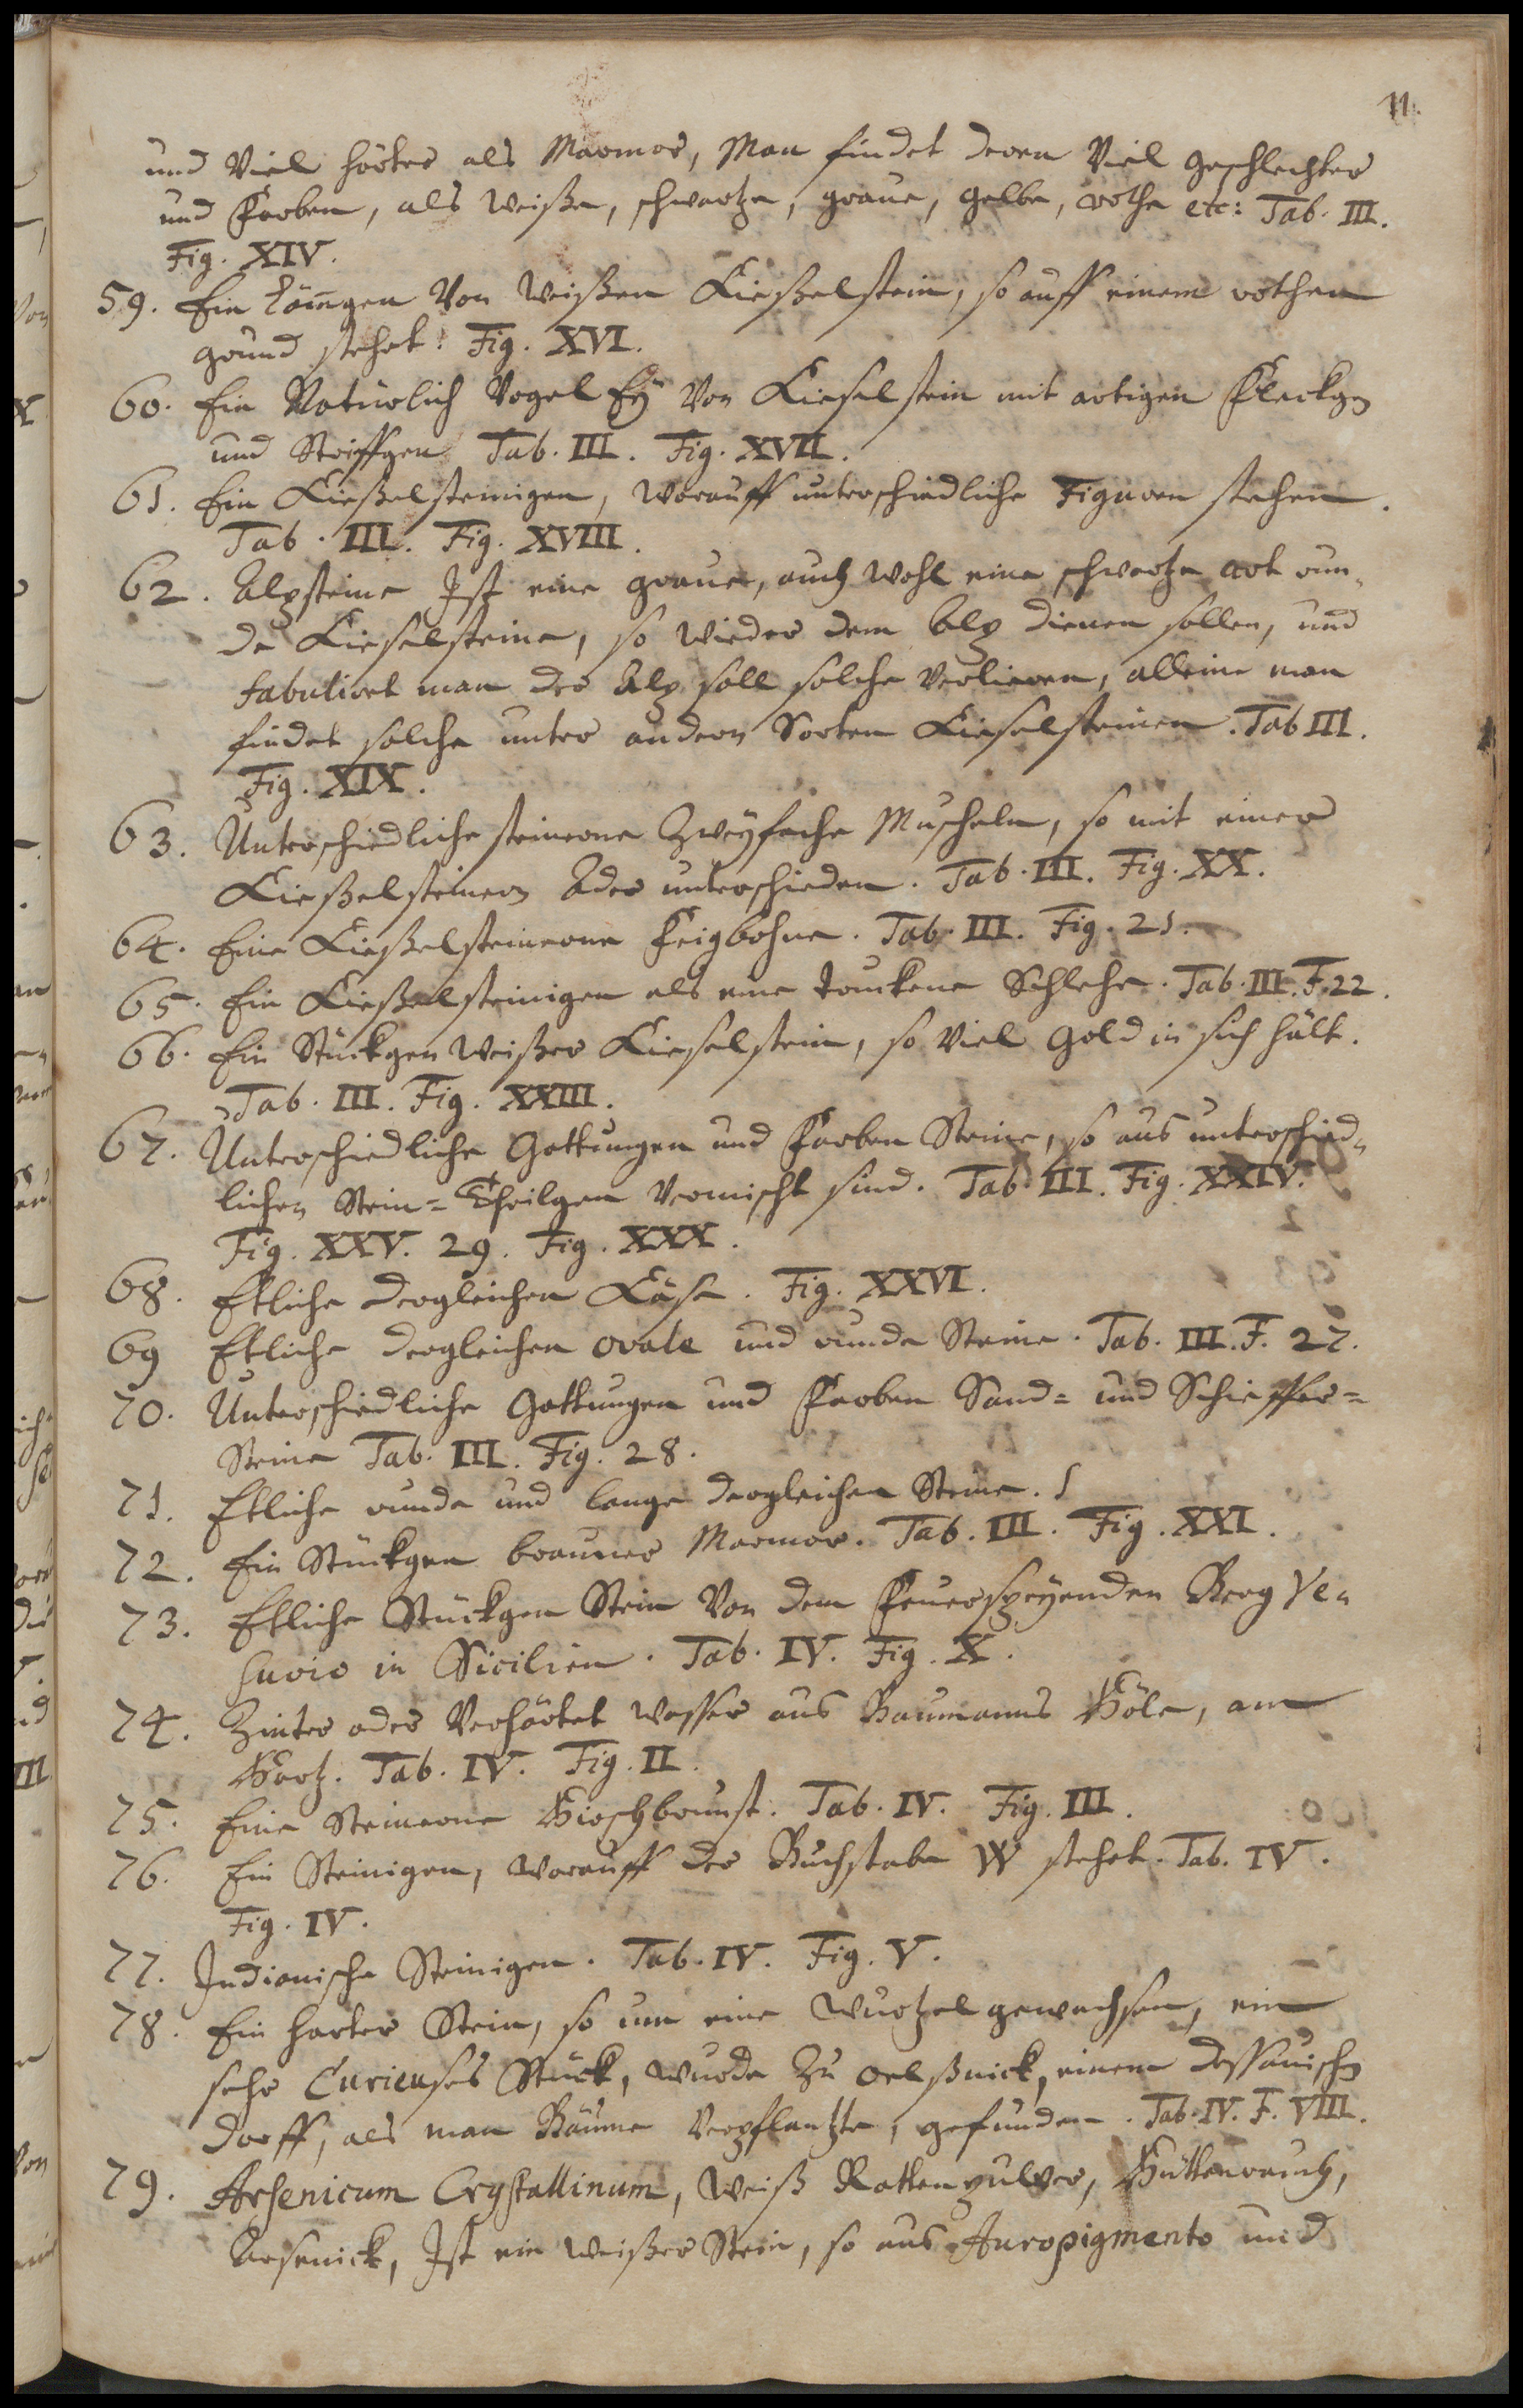 11.
und Viel härter als Marmor, Man findet deren Viel geschlechter
und Farben, als weiße, schwartze, graue, gelbe, rothe etc: Tab. III.
Fig. XIV.
59. Ein Von Weißen Kießelstein, so auff einem rothen
grund stehet: Fig. XVI.
60. Ein Natürlich Vogel Eÿ Von Kieselstein mit artigen Fleckgen
und Streiffgen Tab. III. Fig. XVII.
61. Ein Kießelsteinigen, Worauff unterschiedliche Figuren stehen.
Tab. III. Fig. XVIII.
62. Alpsteine Ist eine graue, auch wohl eine schwartze art run-
de Kieselsteine, so wieder dem Alp dienen sollen, und
fabuliret man der Alp soll solche verlieren, alleine man
findet solche unter andern Sorten Kieselsteinen. Tab III.
Fig. XIX.
63. Unterschiedliche steinerne Zweÿfache Muscheln, so mit einer
Kießelsteinern Ader unterschieden. Tab. III. Fig. XX.
64. Eine Kießelsteinerne Feigbohne. Tab. III. Fig. 21.
65. Ein Kießelsteinigen als eine trockene Schlehe. Tab. III. F. 22.
66. Ein Stückgen Weißer Kieselstein, so Viel Gold in sich hält.
Tab. III. Fig. XXIII.
67. Unterschiedliche Gattungen und Farben Steine, so aus unterschied-
lichen Stein= Theilgen Vermischt sind. Tab. III. Fig. XXIV.
Fig. XXV. 29. Fig. XXX.
68. Etliche dergleichen Käse. Fig. XXVI.
69 Etliche dergleichen ovale und runde Steine. Tab. III. F. 27.
70. Unterschiedliche Gattungen und Farben Sand= und Schieffer=
Steine Tab. III. Fig. 28.
71. Etliche runde und lange dergleichen Steine.
72. Ein Stückgen brauner Marmor. Tab. III. Fig. XXI.
73. Etliche Stückgen Stein Von dem Feuerspeÿenden Berg Ve-
suvio in Sicilien. Tab. IV. Fig. X.
74. Zinter oder Verhärtet Wasser aus Baumanns Höle, am
Hartz. Tab. IV. Fig. II.
75. Eine Steinerne Hirschbrunst. Tab. IV. Fig. III.
76. Ein Steinigen, Worauff der Buchstabe W stehet. Tab. IV.
Fig. IV.
77. Indianische Steinigen. Tab. IV. Fig. V.
78. Ein harter Stein, so um eine Wurtzel gewachsen, ein
sehr Curieuses Stück, wurde Zu Oelßnick, einem Dessauischen
Dorff, als man Bäume Verpflantzte, gefunden. Tab. IV. F. VIII.
79. Arsenicum Crystallinum, Weiß Rattenpulver, Hüttenrauch,
Arsenick, Ist ein weißer Stein, so aus Auropigmento und